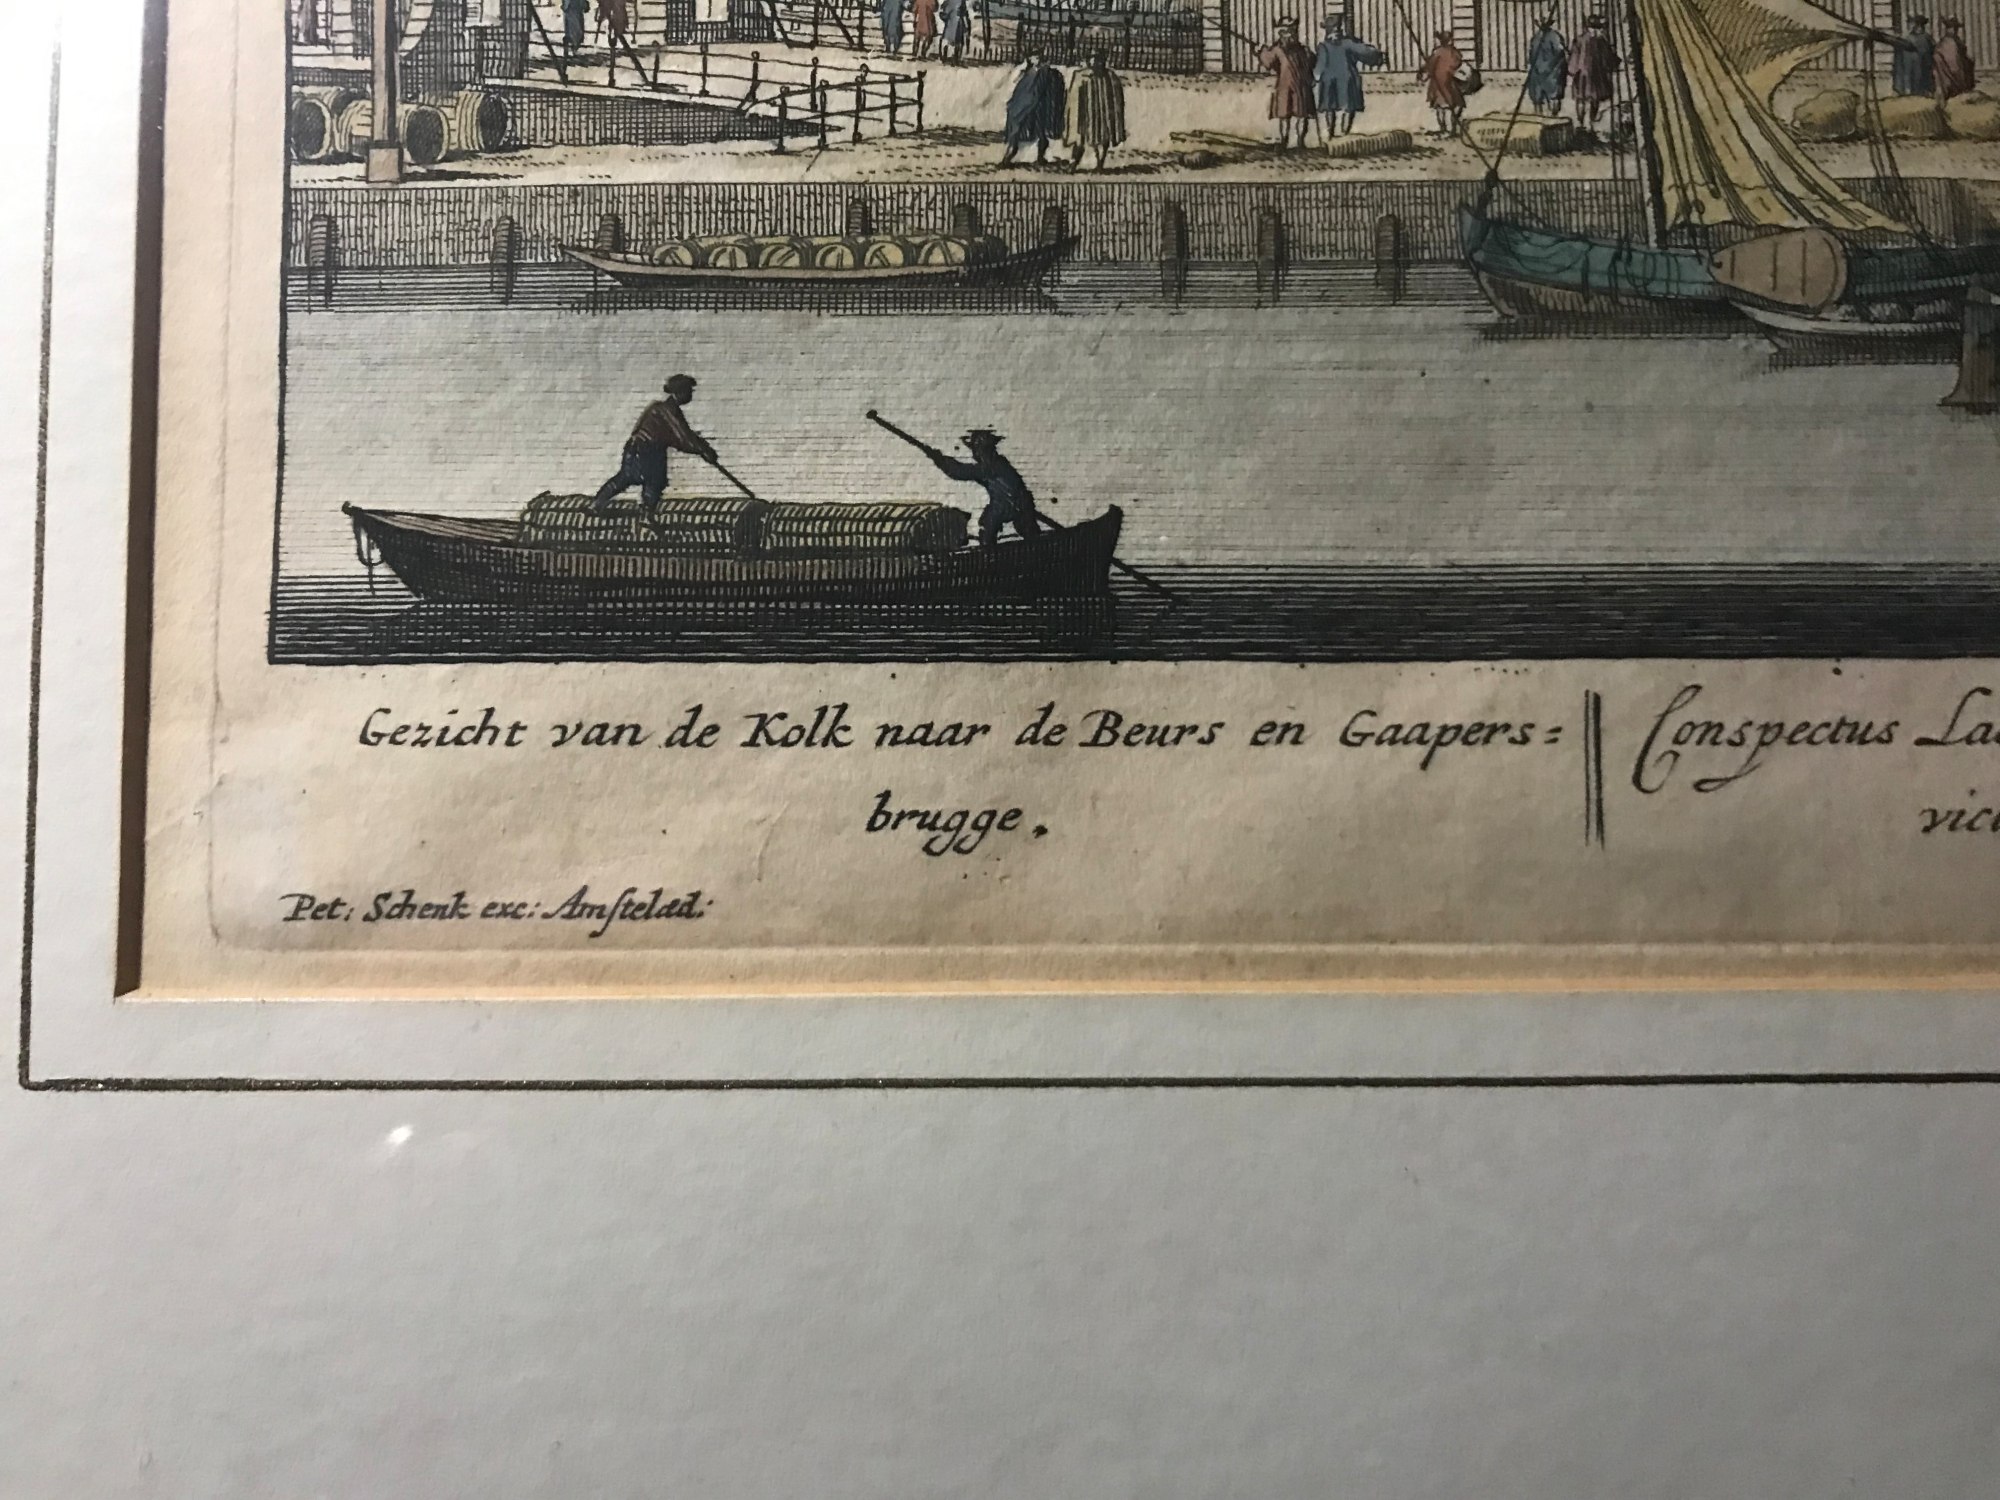 Gezicht van de Kolk naar de Beurs en Gaapers=
brugge.
Conspectus
Pet: Schenk exc: Amſtelæd: